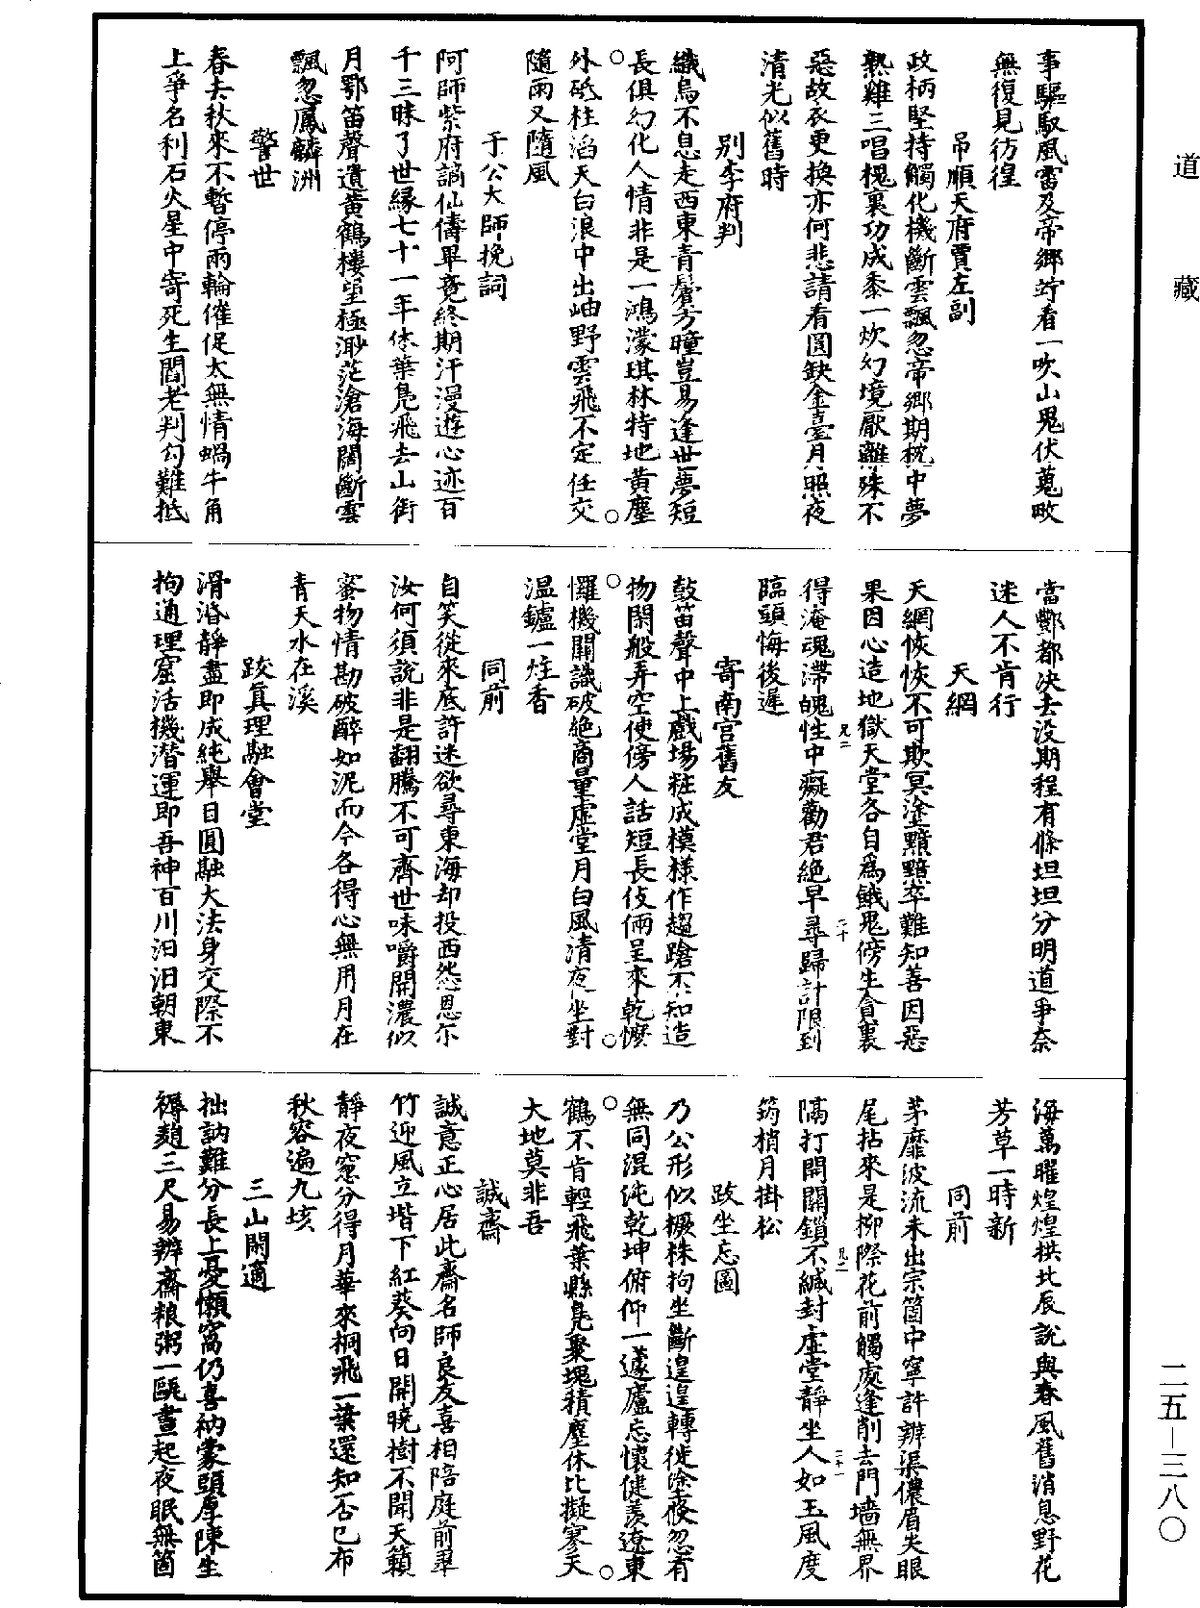 道藏
事驅馭風雷及帝鄉竚看一吹山鬼伏蒐畋
無復見彷徨
弔順天府賈左副
政柄堅持觸化機斷雲飄忽帝鄉期枕中夢
熟雞三唱槐裏功成黍一炊幻境厭離殊不
惡故衣更換亦何悲請看圓缺金臺月照夜
清光似舊時
別李府判
織烏不息走西東青鬢方瞳豈易逢世夢短
長俱幻化人情非是一鴻濛琪林特地黃塵
外砥柱滔天白浪中出岫野雲飛不定任交
隨雨又隨風
于公大師挽詞
阿師紫府謫仙儔畢竟終期汗漫遊心迹百
千三昧了世緣七十一年休葉凫飛去山銜
月鄂笛聲遺黃鶴樓望極渺茫滄海闊斷雲
飄忽鳳麟洲
警世
春去秋來不暫停兩輪催促太無情蝸牛角
上爭名利石火星中寄死生閻老判勾難抵
當酆都決去没期程有條坦坦分明道爭奈
迷人不肯行
天網
天網恢恢不可欺冥塗黯黯卒難知善因惡
果因心造地獄天堂各自爲鱥鬼傍生貪裏
得淹魂滯魄性中癡勸君絕早尋歸計限到
臨頭悔後遲
寄南宮舊友
鼓笛聲中上戲場粧成模樣作趨蹌不知造
物閑般弄空使傍人話短長伎倆呈來乾懡
㦬機關識破絕商量虛堂月白風清夜坐對
温鑪一炷香
同前
自笑從來底許迷欲尋東海却投西然恩尓
汝何須說非是翻騰不可齊世味嚼開濃似
蜜物情勘破醉如泥而今各得心無用月在
青天水在溪
跋真理融會堂
滑湣靜盡即成純舉日圓融大法身交際不
拘通理窟活機潛運即吾神百川汩汩朝東
海萬曜煌煌拱北辰說與春風舊消息野花
芳草一時新
同前
茅靡波流未出宗箇中寧許辨渠儂眉失眼
尾拈來是柳際花前觸處逢削去門墻無界
隔打開關鎖不緘封虛堂靜坐人如玉風度
筠梢月掛松
跋坐忘圖
乃公形似橛株拘坐斷遑遑轉徙塗倏忽有
無同混沌乾坤俯仰一蘧廬忘懷健羨遼東
鶴不肯輕飛葉縣凫聚塊積塵休比擬寥天
大地莫非吾
誠齋
誠意正心居此齋名師良友喜相陪庭前翠
竹迎風立堦下紅葵向日開曉樹不聞天籟
靜夜窻分得月華來桐飛一葉還知否已布
秋容遍九垓
三山閑適
拙訥難分長上憂懶窩仍喜衲蒙頭厚陳生
褥麹三尺易辨齋粮粥一甌晝起夜眠無箇
二五—三八〇